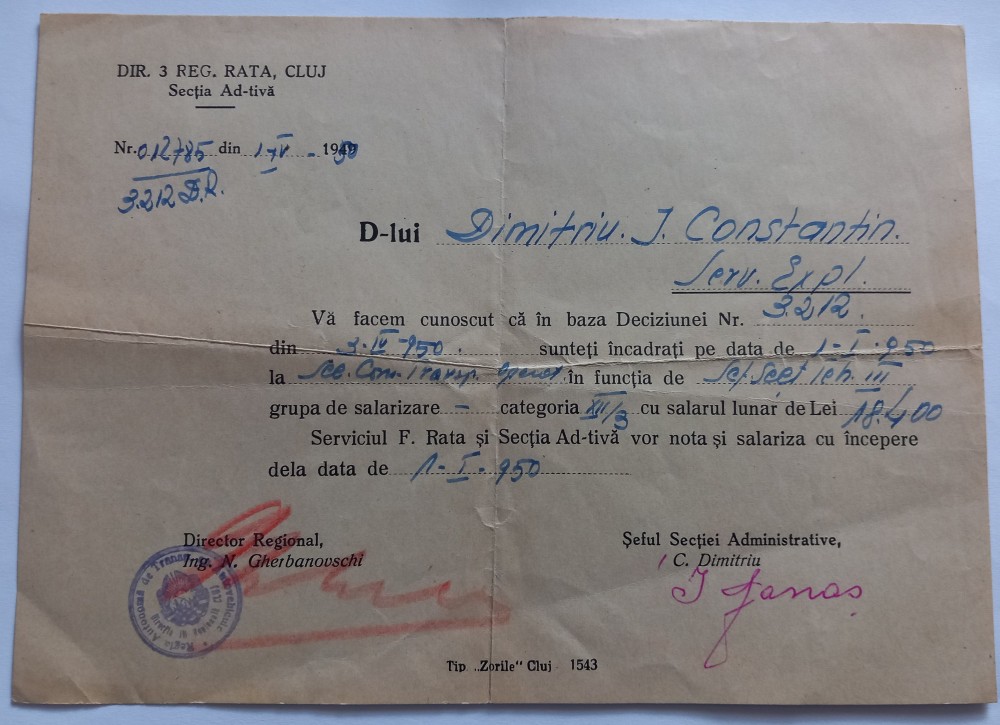 DIR. 3 REG. RATA, CLUJ
Secția Ad-tivă
Nr. 012785 din 1-V - 1950
3.212 D.R.
D-lui Dimitriu. I. Constantin.
Serv. Expl.
Vă facem cunoscut că în baza Deciziunei Nr. 3.212.
din 3-IV-950. sunteți încadrați pe data de 1-I-950
la Sec. Com. Transp. în funcția de Șef. Secț Teh. III
grupa de salarizare - categoria XII/3 cu salarul lunar de Lei 18.400
Serviciul F. Rata și Secția Ad-tivă vor nota și salariza cu începere
dela data de 1-I-950
Director Regional,
Ing. N. Gherbanovschi
Șeful Secției Administrative,
C. Dimitriu
I Janas
Regia Autonomă de Transp. Autovehicule
Tip. „Zorile" Cluj - 1543